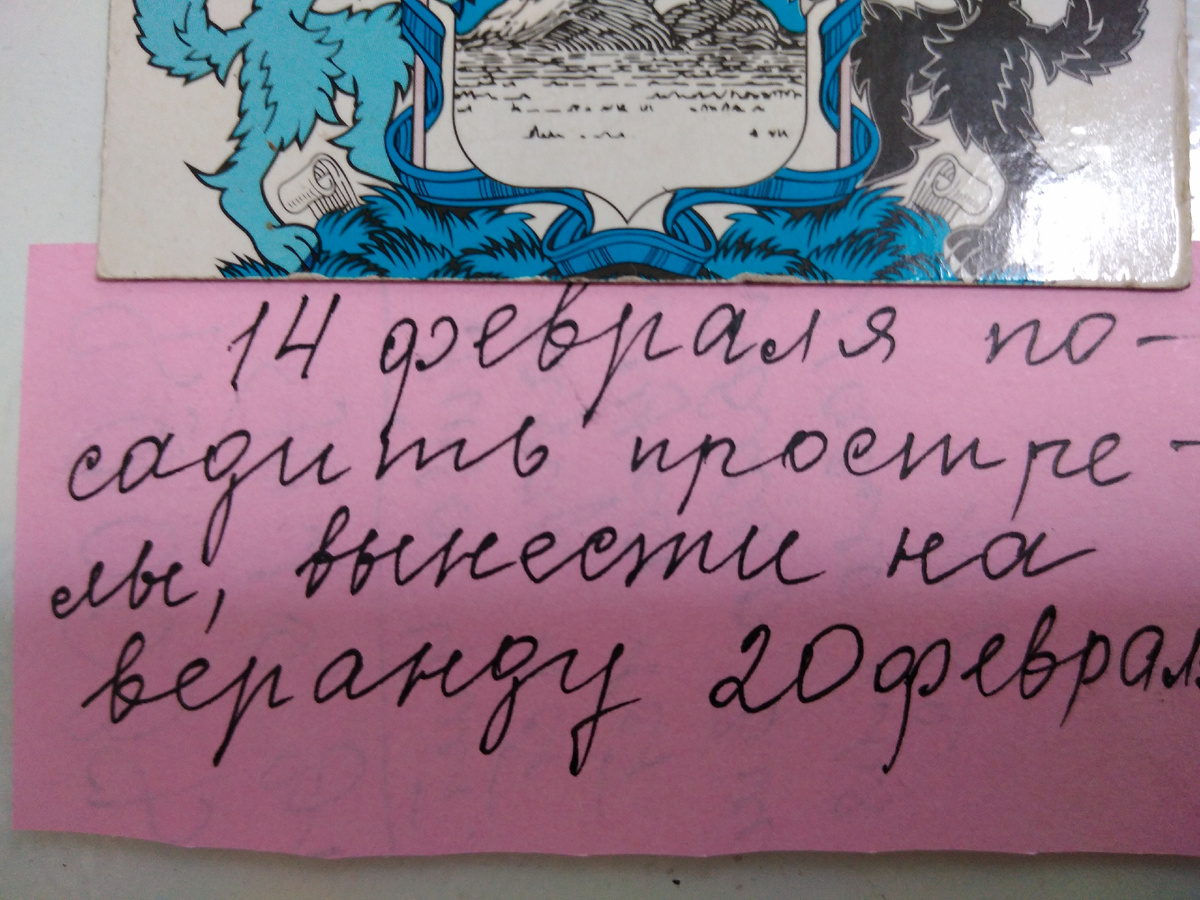 14 февраля по-
садить простре-
лы, вынести на
веранду 20 феврал